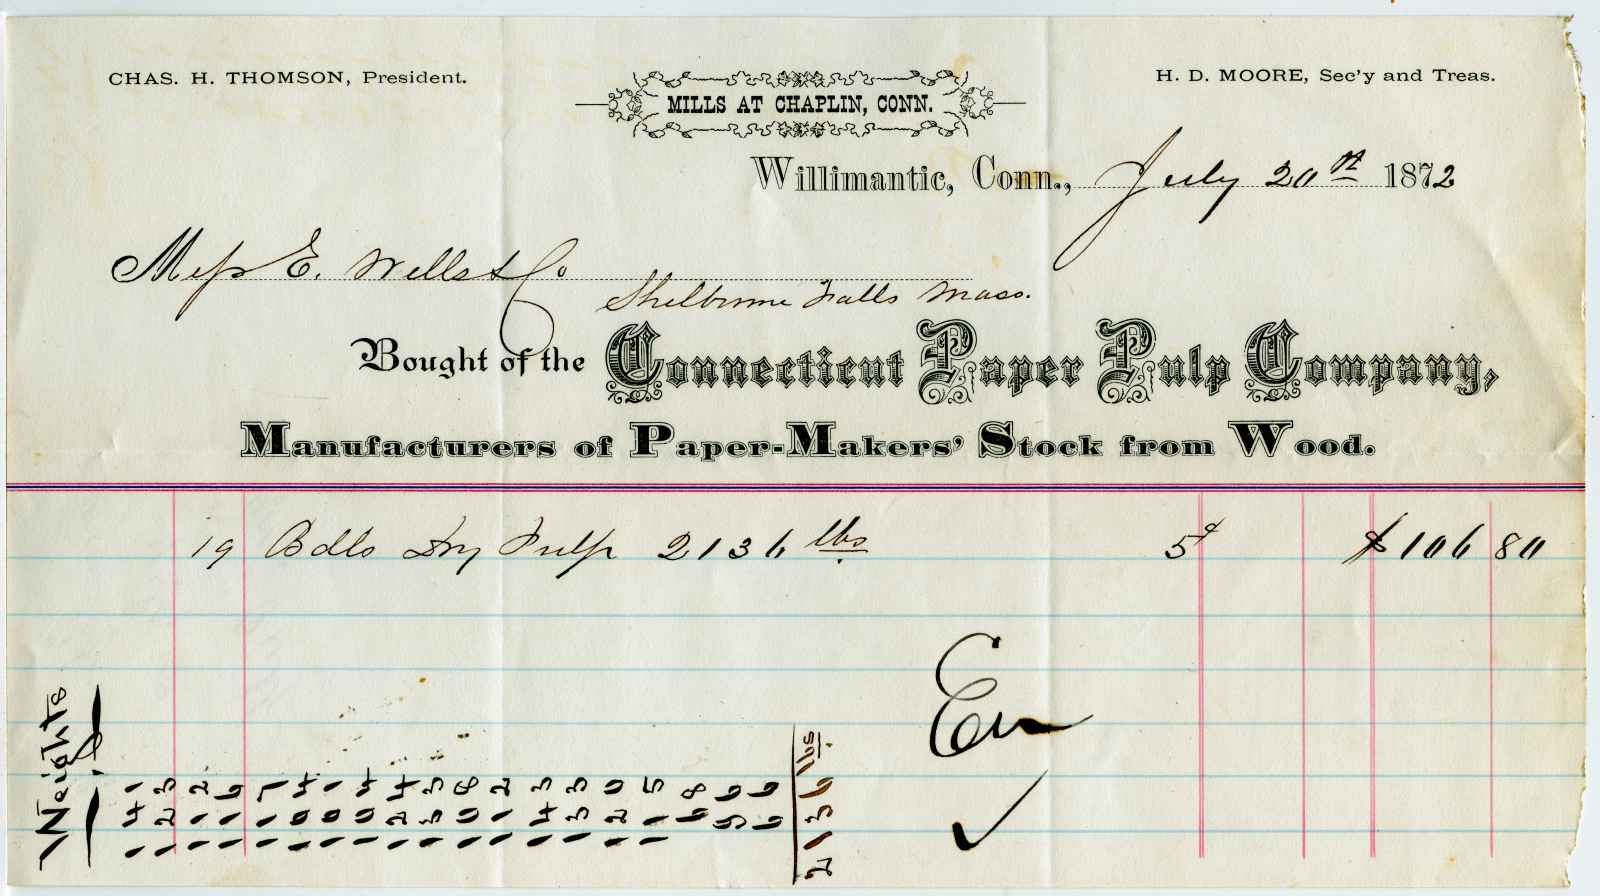 CHAS. H. THOMSON, President.
MILLS AT CHAPLIN, CONN.
H. D. MOORE, Sec'y and Treas.
Willimantic, Conn., July 20th 1872
Mess E. Wells & Co
Shelburne Falls Mass.
Bought of the Connecticut Paper Pulp Company,
Manufacturers of Paper-Makers' Stock from Wood.
19 Bdls Dry Pulp 2136 lbs 5¢ $106 80
Weights
141
123
112
116
117
104
101
104
124
133
108
112
143
133
120
115
68
96
66
2136 lbs.